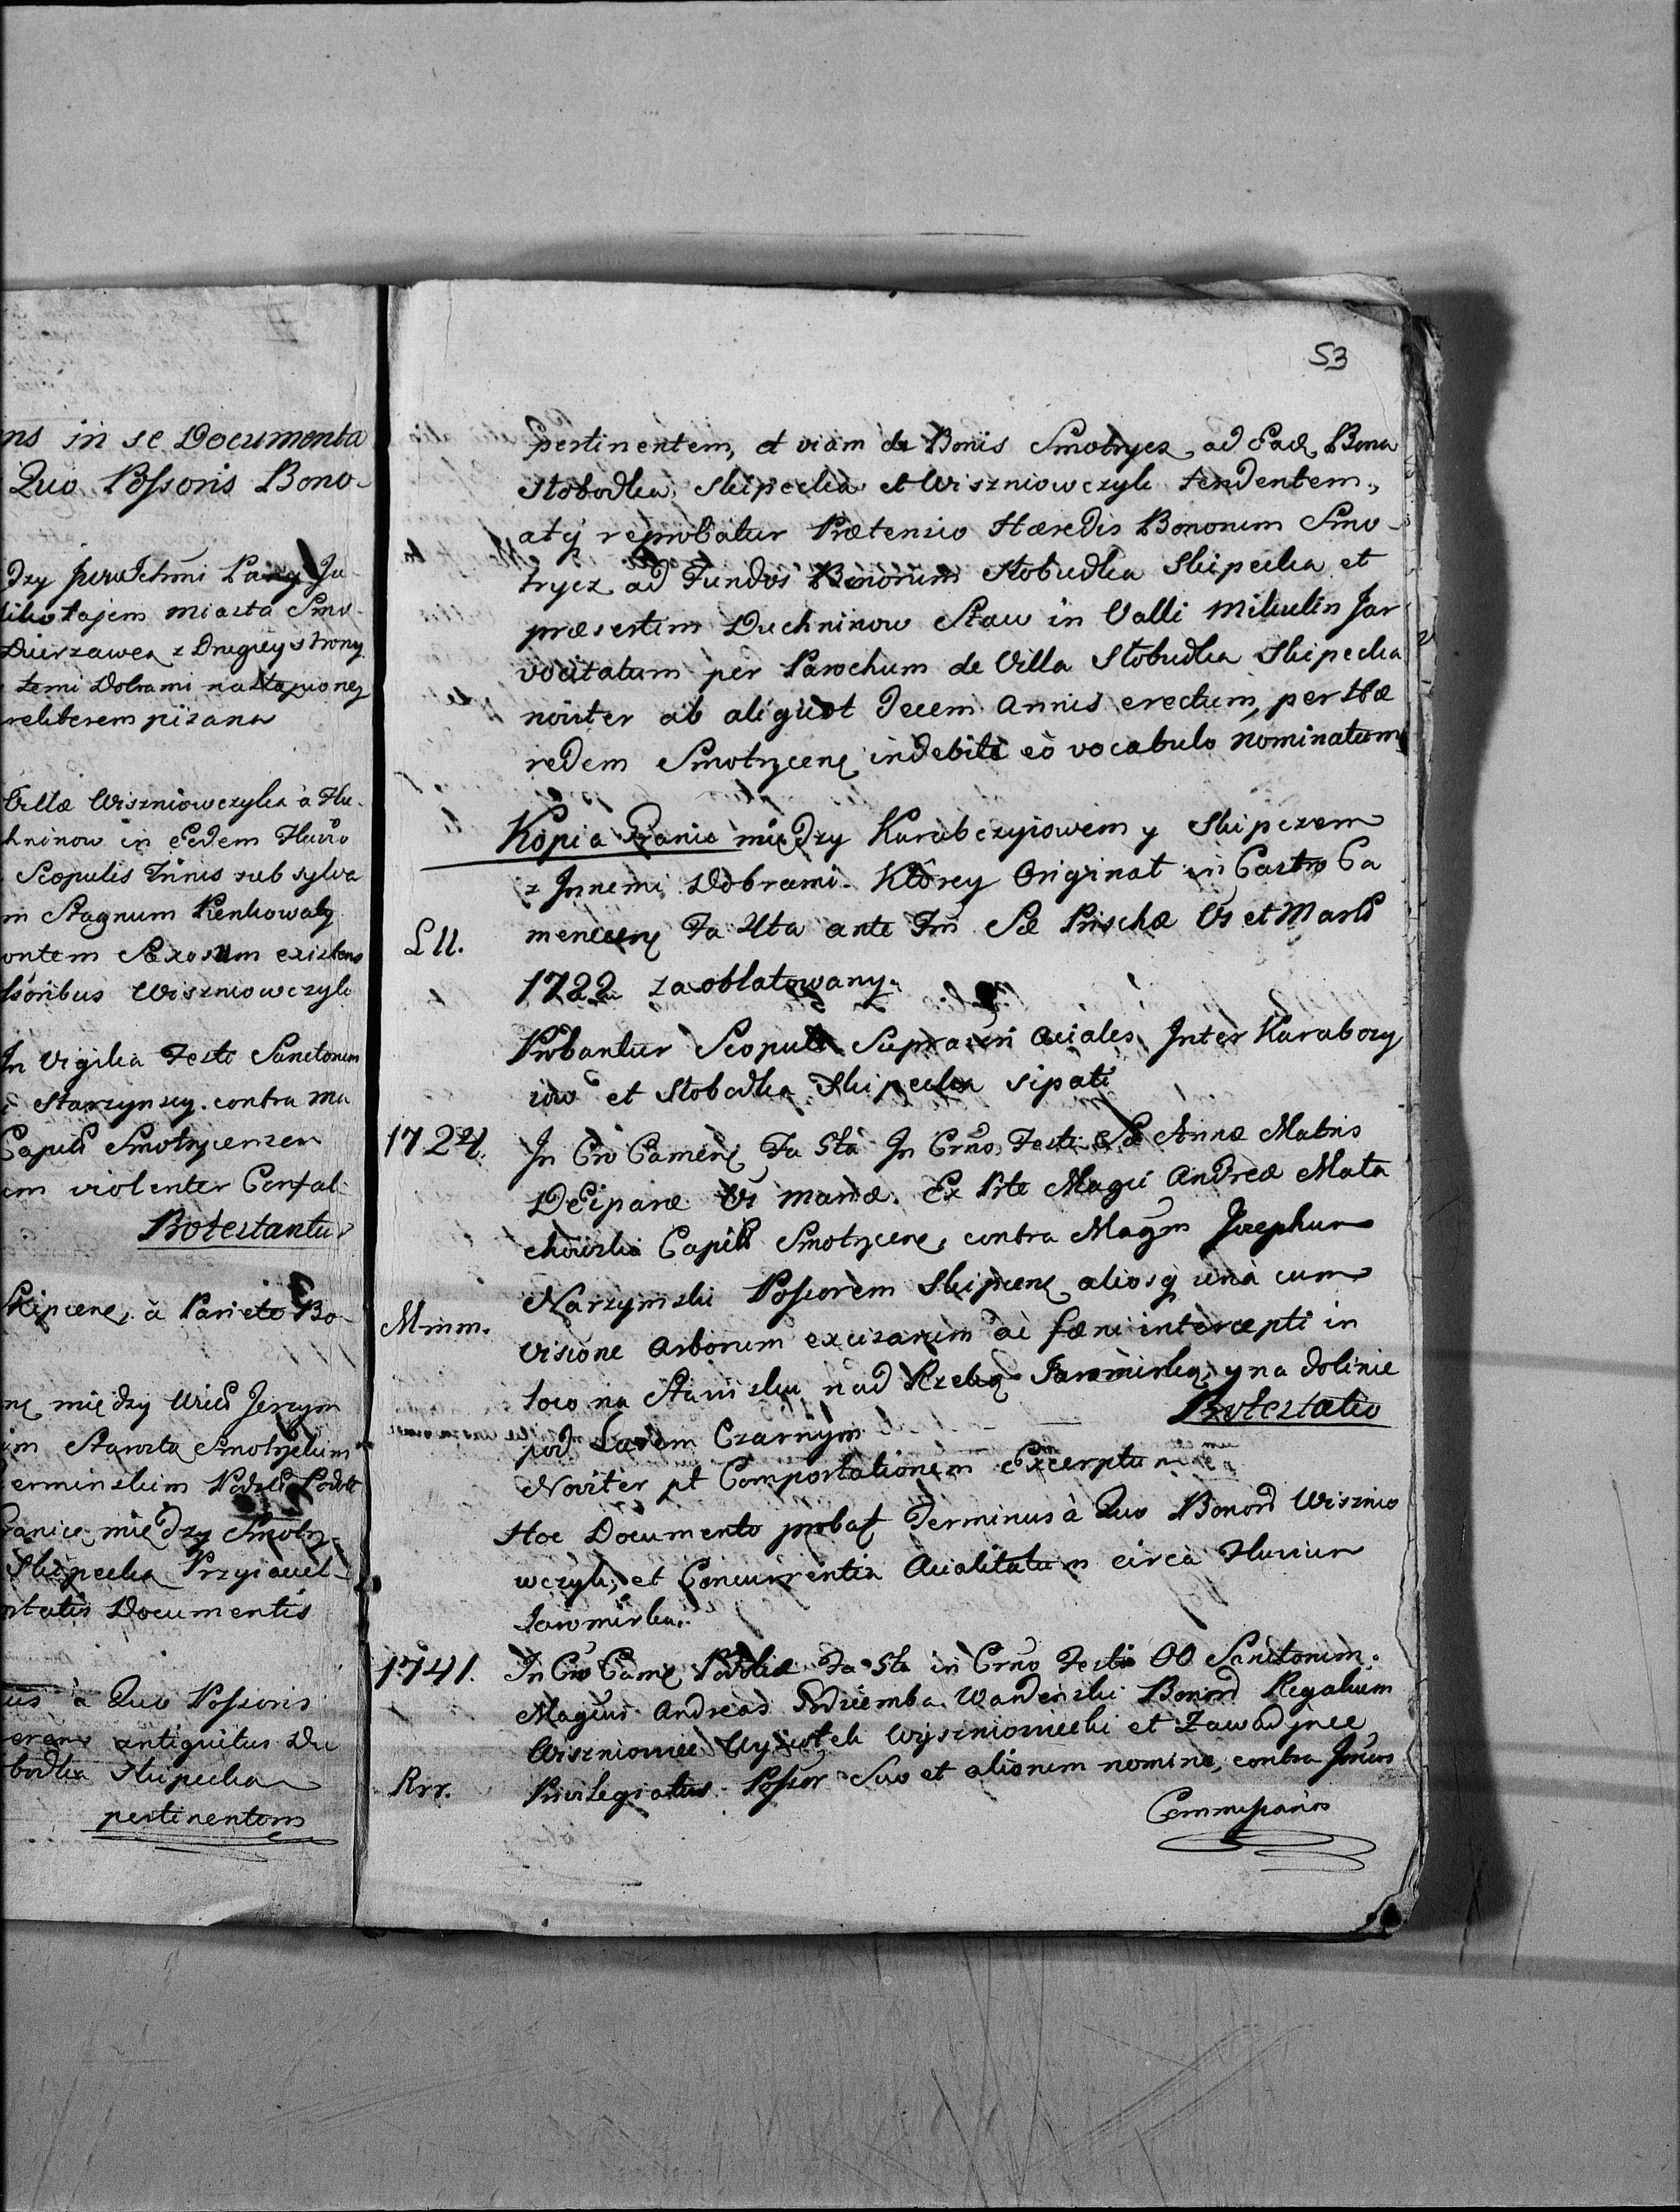 ns in se Documenta
Quo Possoris Bono-
tajem miasta Smo-
Dzierzawca z Drugiey strony
temi Dobrami nastąpioney
pisana
Villæ Wiszniowczyka à Flu-
hninow in Eodem Fluvio
Scopulis Trinis sub sylva
m Stagnum
ontem Saxosum existens
Wiszniowczyk
In Vigilia Festi Sanctorum
Starzynscy contra Ma
Capit Smotrycensem
em violenter
Protestantur
Skipcens. à Pariete Bo-
między Jerzym
im Starosta Smotryckim
erminskim
Granice między Smotry-
Skipecka Przyiaciel-
Documentis
us à Quo Possoris
antiquitus Du
bodka Skipecka
pertinentem
53
pertinentem, et viam de Bonis Smotrycz ad Ead. Bona
Słobodka Skipecka et Wiszniowczyk tendentem,
atq reprobatur Prætensio Hæredis Bonorum Smo-
trycz ad Fundos Bonorum Słobudka Skipecka et
præsertim Duchninow Staw in Valli Mikulin Jar
vocitatum per Parochum de Villa Słobudka Skipecka
noviter ab aliquot Decem Annis erectum, per Hæ
redem Smotrycens indebite eò vocabulo nominatum
Kopia Granic między Karabczyiowem y Skipczem
z Jnnemi Dobrami. Ktorey Originał in Castro Ca
menecens Fa 4ta ante Fm Sæ Priscæ Vs et Marts
Lll.
1722 zaoblatowany.
Probantur Scopuli Supra in Aciales Jnter Karabczy
iow et Słobodka Skipecka sipati
1724. In Cro Camens Fa 5ta In Crno Festi Sæ Annæ Matris
Deiparæ Vs Mariæ. Ex Pte Magci Andreæ Mala
chowski Capiti Smotrycens, contra Magcm Josephum
Narzymski Possorem Skipcens aliosq unà cum
Mmm. visione Arborum excisarum ac fæni intercepti in
loco na Stawisku nad Rzeką Jaromirką, y na dolinie
pod Lasem Czarnym Protestatio
Noviter pt Comportationem Excerptum
Hoc Documento probat Terminus à Quo Bonor Wisznio
wczyk, et Concurrentia Acialitatum circa Fluvium
Jaromirka.
1741. In Cro Came Podoliæ Fa 5ta in Crno Festi OO Sanctorum.
Magcus Andreas Wandenski Bonor Regalium
Wyszniowiecki et Zawadynce
Rrr. Privilegiatus Possor Suo et aliorum nomine, contra Jnros
Commissarios